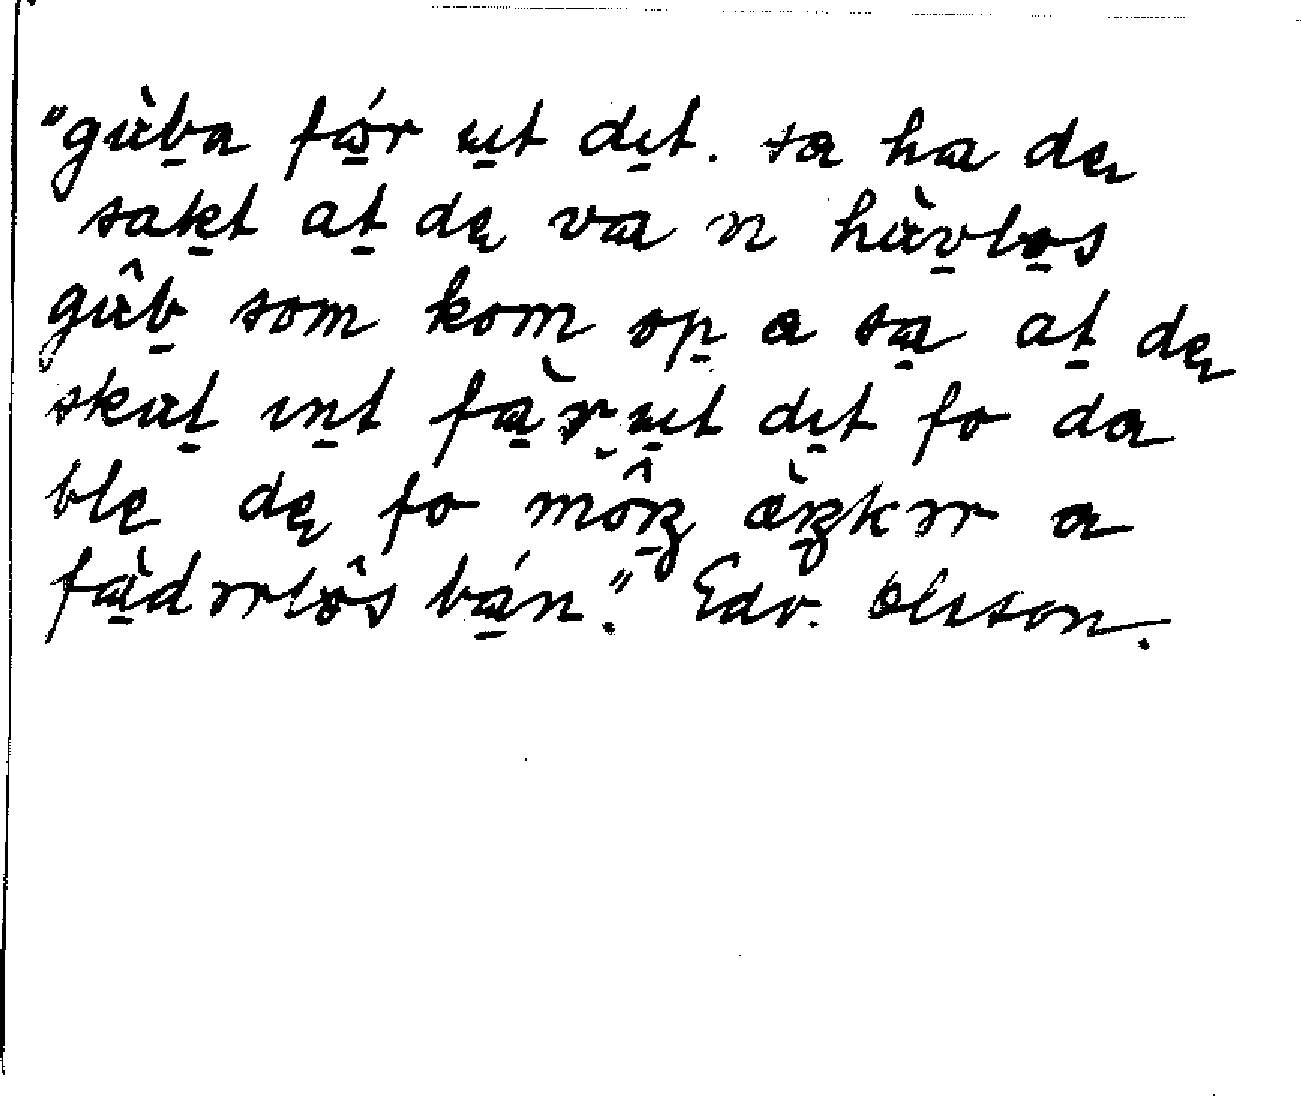 "gùba fǿr ut dıt. sa ha dę
sakt at dę va n hàvløs
gûb som kom op a sa at dę
skut ınt fàr ut dıt fo da
blę dę fo môŋ æ̀ŋkɔr a
fàdɔrlø̂s bán." Edv. Olsson.